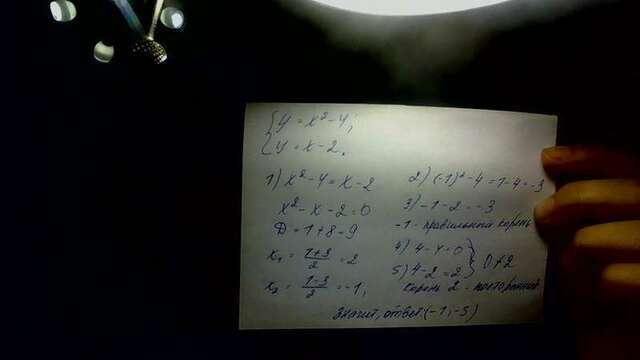 { y = x² - 4;
{ y = x - 2.
1) x² - 4 = x - 2
x² - x - 2 = 0
D = 1 + 8 = 9
x₁ = (1+3)/2 = 2
x₂ = (1-3)/2 = -1,
2) (-1)² - 4 = 1 - 4 = -3
3) -1 - 2 = -3
-1 - правильный корень
4) 4 - 4 = 0 }
5) 4 - 2 = 2 } 0 ≠ 2
корень 2 - посторонний
Значит, ответ: (-1; -3)